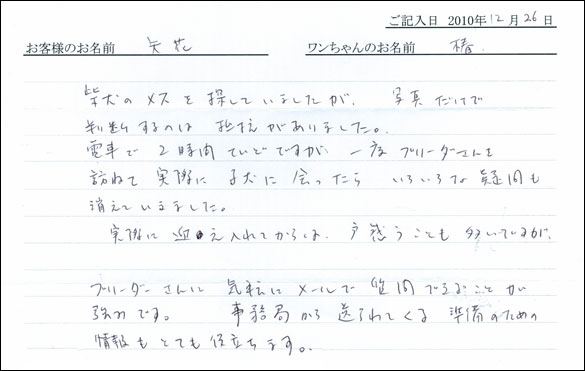 ご記入日 2010年12月26日
お客様のお名前 矢花 ワンちゃんのお名前 椿
柴犬のメスを探していましたが、写真だけで
判断するのは抵抗がありました。
電車で2時間ていどですが、一度ブリーダーさんを
訪ねて実際に子犬に会ったらいろいろな疑問も
消えていきました。
実際に迎え入れてからは、戸惑うことも多いですが、
ブリーダーさんに気軽にメールで質問できることが
強力です。事務局から送られてくる準備のための
情報もとても役立ちます。